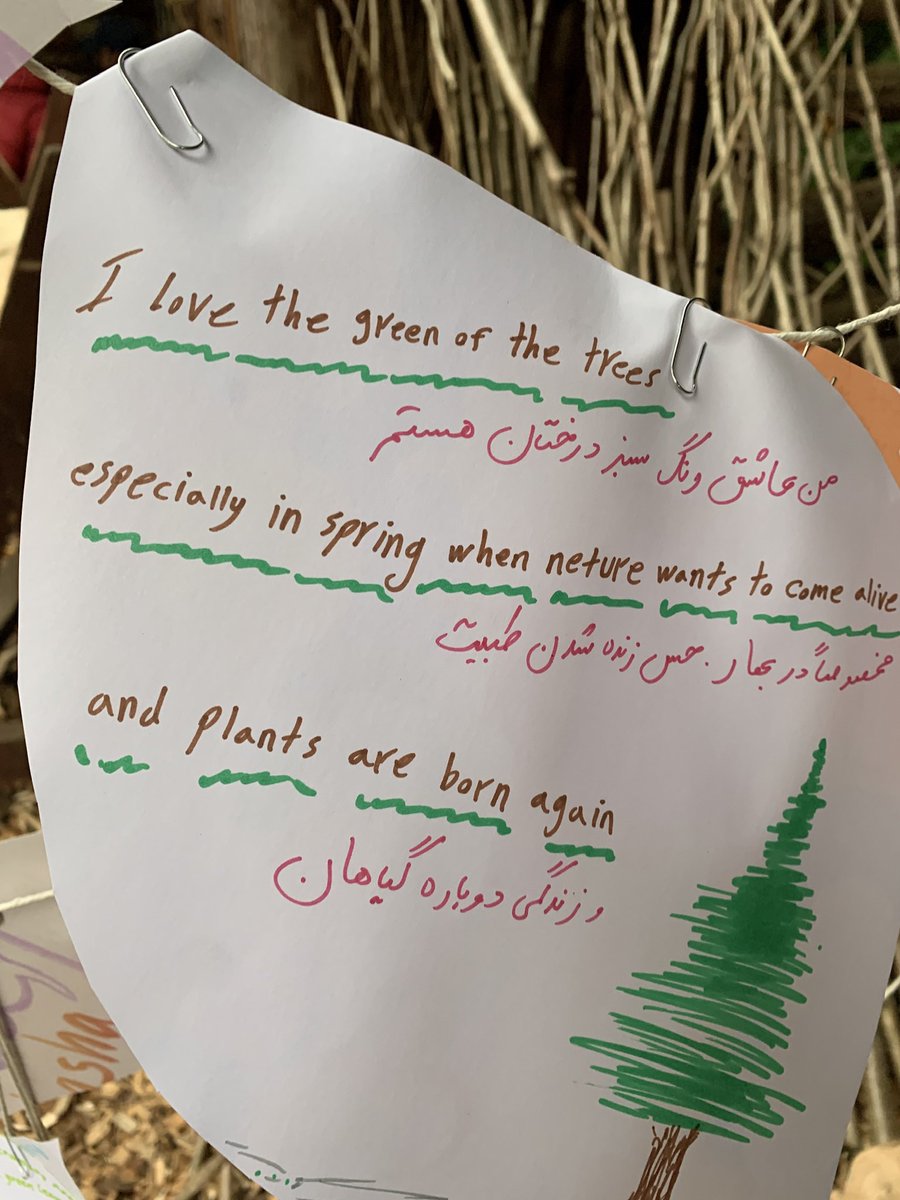 I love the green of the trees
من عاشق رنگ سبز درختان هستم
especially in spring when neture wants to come alive
مخصوصاً در بهار . حس زنده شدن طبیت
and plants are born again
و زندگی دوباره گیاهان